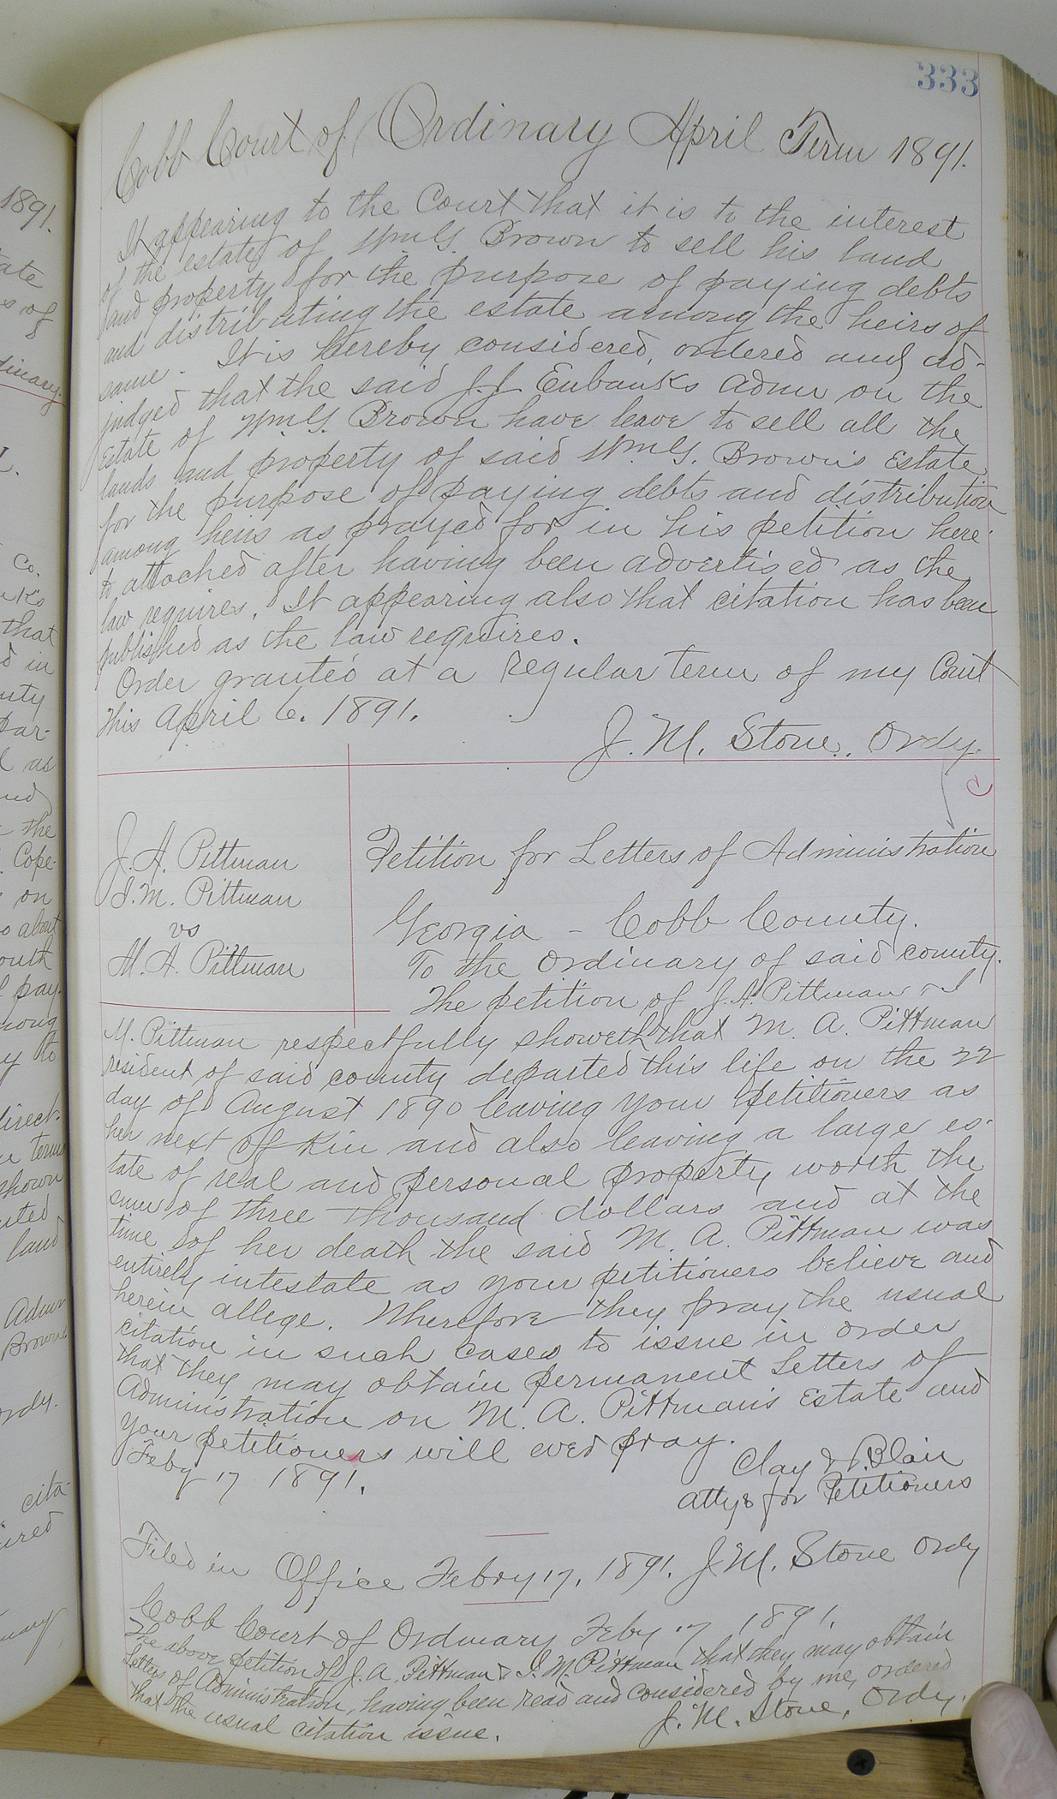 333
Cobb Court of Ordinary April Term 1891.
It appearing to the Court that it is to the interest
of the estate of Wm G. Brown to sell his land
and property for the purpose of paying debts
and distributing the estate among the heirs of
same. It is hereby considered, ordered and ad-
judged that the said J.J. Eubanks Admr on the
Estate of Wm G. Brown have leave to sell all the
lands and property of said Wm G. Brown's Estate
for the purpose of paying debts and distribution
among heirs as prayed for in his petition here-
to attached after having been advertised as the
law requires. It appearing also that citation has been
published as the law requires.
Order granted at a regular term of my Court
this April 6. 1891.
J. M. Stone. Ordy.
J. A. Pittman
I. M. Pittman
vs
M. A. Pittman
Petition for Letters of Administration
Georgia - Cobb County.
To the Ordinary of said county.
The petition of J. A. Pittman & I
M. Pittman respectfully showeth that M. A. Pittman
resident of said county departed this life on the 22
day of August 1890 leaving your petitioners as
her next of kin and also leaving a large es-
tate of real and personal property worth the
sum of three thousand dollars and at the
time of her death the said M. A. Pittman was
entirely intestate as your petitioners believe and
herein allege. Wherefore they pray the usual
citation in such cases to issue in order
that they may obtain permanent Letters of
Administration on M. A. Pittman's Estate and
your petitioners will ever pray.
Feby 17 1891.
Clay & Blair
Attys for Petitioners
Filed in Office Febry 17, 1891. J. M. Stone Ordy
Cobb Court of Ordinary Feby 17 1891.
The above petition of J. A. Pittman & I. M. Pittman that they may obtain
Letters of Administration, having been read and considered by me, ordered
that the usual citation issue.
J. M. Stone, Ordy.
1891.
tate
s of
dinary.
Co.
that
d in
nty
par-
l as
nd
the
Cope-
on
o about
outh
pay-
mong
y to
direct-
terms
shown
land
Admr
Brown
ordy.
cita-